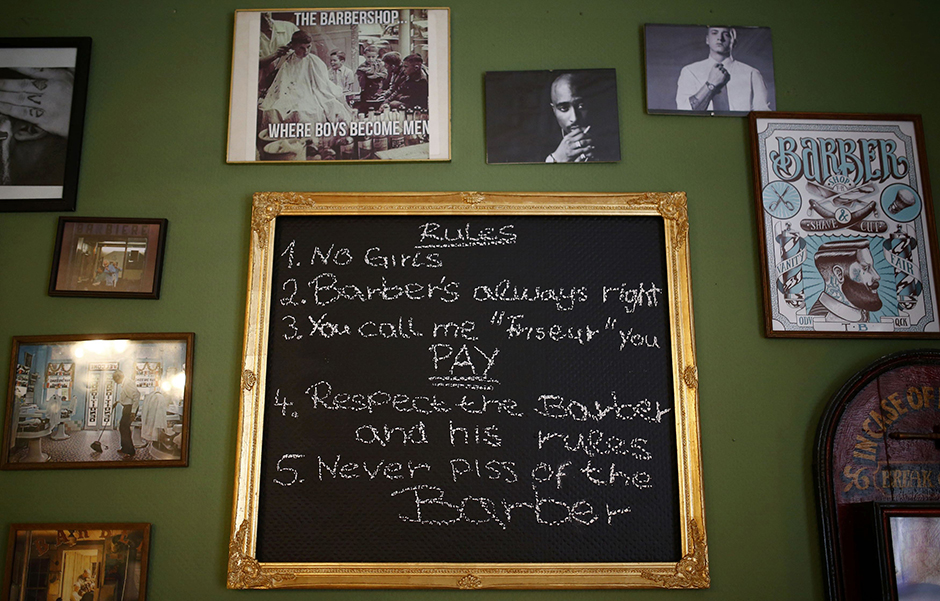 THE BARBERSHOP...
WHERE BOYS BECOME MEN
RULES
1. No Girls
2. Barber's always right
3. You call me "Friseur" you
PAY
4. Respect the Barber
and his rules
5. Never piss of the
Barber
BARBER
SHOP
SHAVE & CUT
VANITY
FAIR
ODV
T-B
QCK
IN CASE OF
BREAK